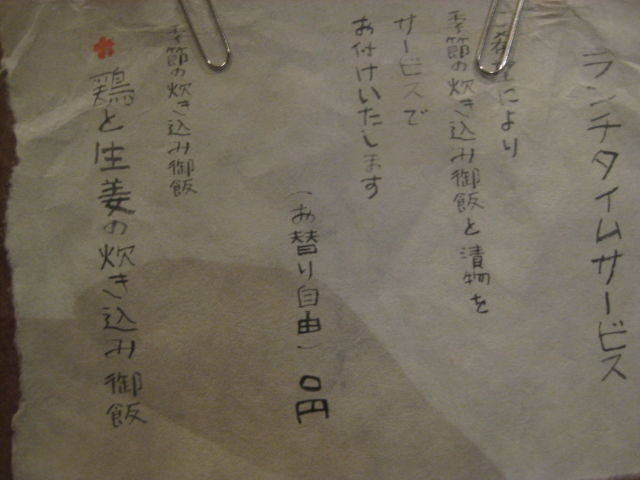 ランチタイムサービス
ご希望により
季節の炊き込み御飯と漬物を
サービスで
お付けいたします
（お替り自由） 0円
季節の炊き込み御飯
鶏と生姜の炊き込み御飯